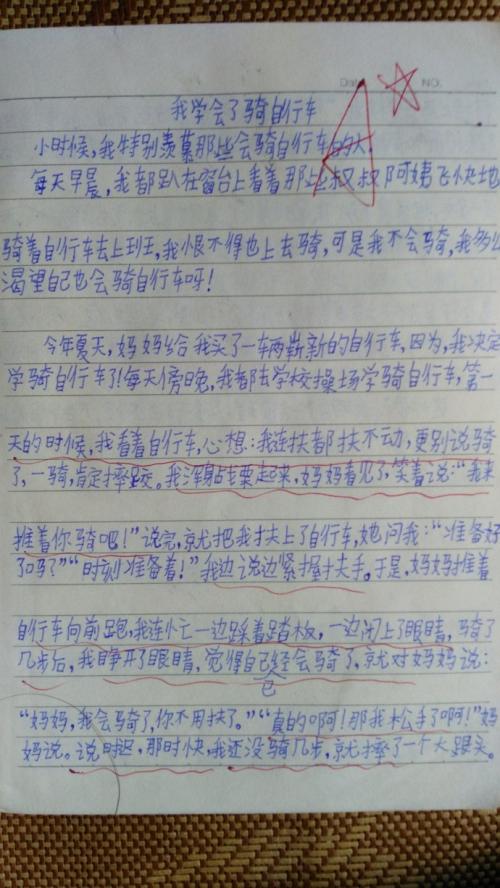 我学会了骑自行车
小时候，我特别羡慕那些会骑自行车的大
每天早晨，我都趴在窗台上看着那些叔叔阿姨飞快地
骑着自行车去上班，我恨不得也上去骑，可是我不会骑，我多么
渴望自己也会骑自行车呀！
今年夏天，妈妈给我买了一辆崭新的自行车，因为，我决定
学骑自行车了！每天傍晚，我都去学校操场学骑自行车，第一
天的时候，我看着自行车，心想：我连扶都扶不动，更别说骑
了，一骑，肯定摔跤。我浑身战栗起来，妈妈看见了，笑着说：“我来
推着你骑吧！”说完，就把我扶上了自行车，她问我：“准备好
了吗？”“时刻准备着！”我边说边紧握扶手。于是，妈妈推着
自行车向前跑，我连忙一边踩着踏板，一边闭上了眼睛，骑了
几步后，我睁开了眼睛，觉得自己经会骑了，就对妈妈说：
已
“妈妈，我会骑了，你不用扶了。”“真的啊！那我松手了啊！”妈
妈说。说时迟，那时快，我还没骑几步，就摔了一个大跟头。